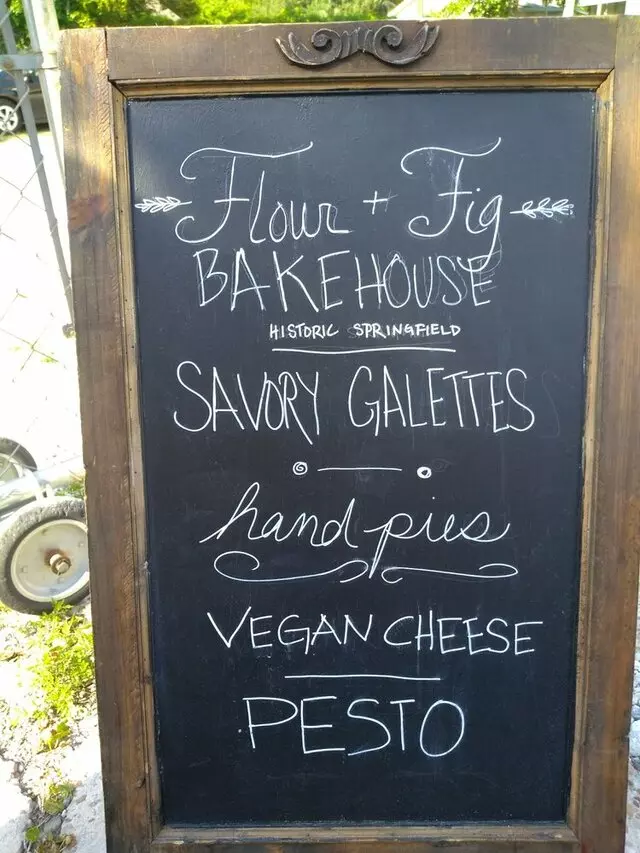 Flour + Fig
BAKEHOUSE
HISTORIC SPRINGFIELD
SAVORY GALETTES
hand pies
VEGAN CHEESE
PESTO